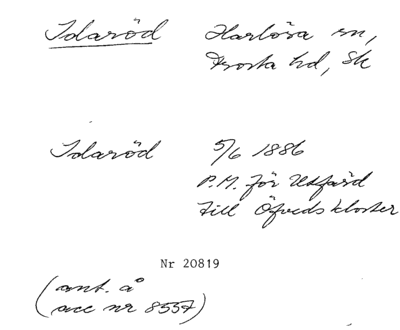 Idaröd Harlösa sn,
Frosta hd, Sk
Idaröd 5/6 1886
P.M. för Utfärd
till Öfvedskloster
Nr 20819
(ant. å
acc nr 8557)